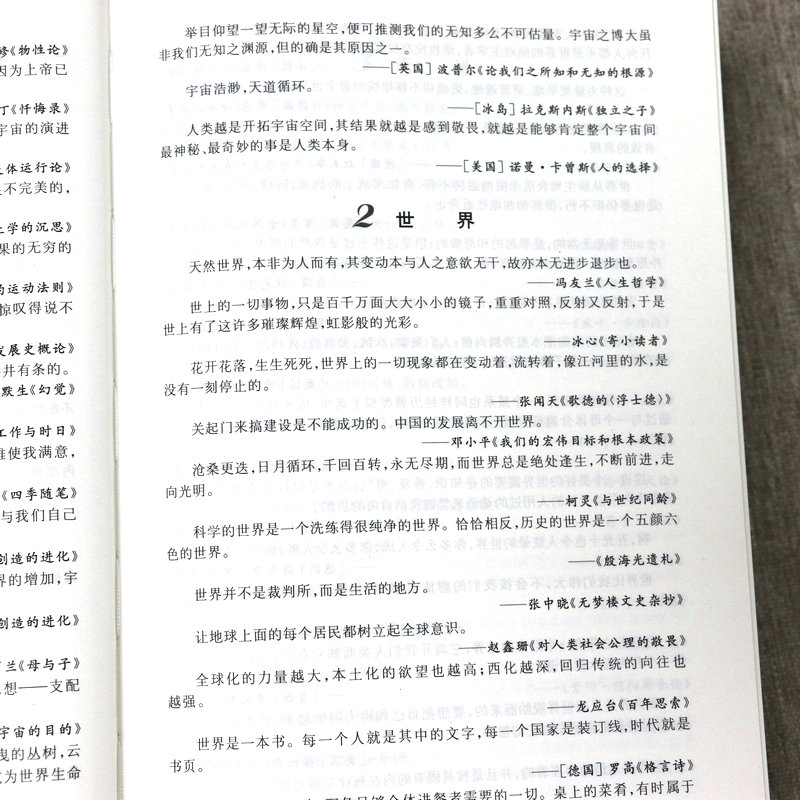 修《物性论》
因为上帝已
丁《忏悔录》
宇宙的演进
体运行论》
是不完美的,
上学的沉思》
果的无穷的
的运动法则》
惊叹得说不
发展史概论》
井有条的。
默生《幻觉》
工作与时日》
难使我满意,
《四季随笔》
与我们自己
创造的进化》
界的增加,宇
创造的进化》
兰《母与子》
想——支配
宇宙的目的》
曳的丛树,云
成为世界生命
举目仰望一望无际的星空,便可推测我们的无知多么不可估量。宇宙之博大虽
非我们无知之渊源,但的确是其原因之一。
——[英国]波普尔《论我们之所知和无知的根源》
宇宙浩渺,天道循环。
——[冰岛]拉克斯内斯《独立之子》
人类越是开拓宇宙空间,其结果就越是感到敬畏,就越是能够肯定整个宇宙间
最神秘、最奇妙的事是人类本身。
——[美国]诺曼·卡曾斯《人的选择》
2 世 界
天然世界,本非为人而有,其变动本与人之意欲无干,故亦本无进步退步也。
——冯友兰《人生哲学》
世上的一切事物,只是百千万面大大小小的镜子,重重对照,反射又反射,于是
世上有了这许多璀璨辉煌,虹影般的光彩。
——冰心《寄小读者》
花开花落,生生死死,世界上的一切现象都在变动着,流转着,像江河里的水,是
没有一刻停止的。
——张闻天《歌德的〈浮士德〉》
关起门来搞建设是不能成功的。中国的发展离不开世界。
——邓小平《我们的宏伟目标和根本政策》
沧桑更迭,日月循环,千回百转,永无尽期,而世界总是绝处逢生,不断前进,走
向光明。
——柯灵《与世纪同龄》
科学的世界是一个洗练得很纯净的世界。恰恰相反,历史的世界是一个五颜六
色的世界。
——《殷海光遗札》
世界并不是裁判所,而是生活的地方。
——张中晓《无梦楼文史杂抄》
让地球上面的每个居民都树立起全球意识。
——赵鑫珊《对人类社会公理的敬畏》
全球化的力量越大,本土化的欲望也越高;西化越深,回归传统的向往也
越强。
——龙应台《百年思索》
世界是一本书。每一个人就是其中的文字,每一个国家是装订线,时代就是
书页。
[德国]罗高《格言诗》
要的一切。桌上的菜肴,有时属于